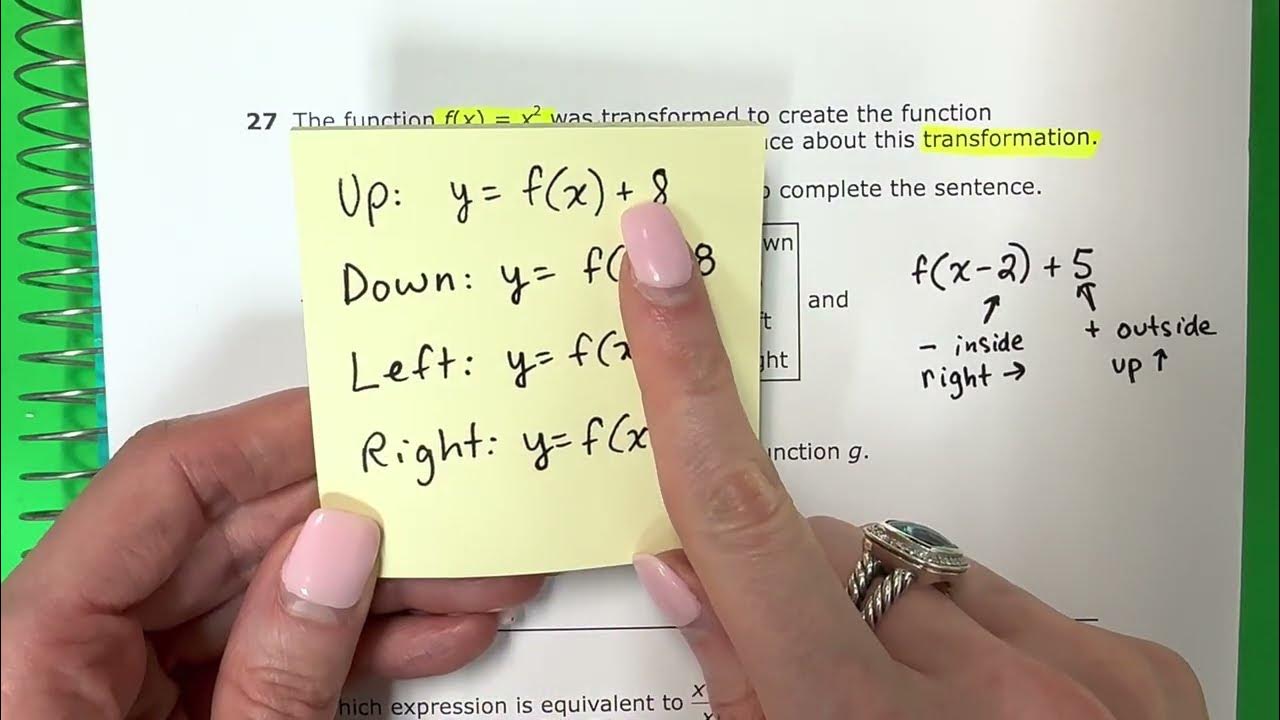 27 The function f(x) = x² was transformed to create the function
about this transformation.
complete the sentence.
Up: y = f(x) + 8
Down: y = f( 8
Left: y = f(x
Right: y = f(x
and
f(x-2) + 5
- inside
right →
+ outside
up ↑
g.
expression is equivalent to